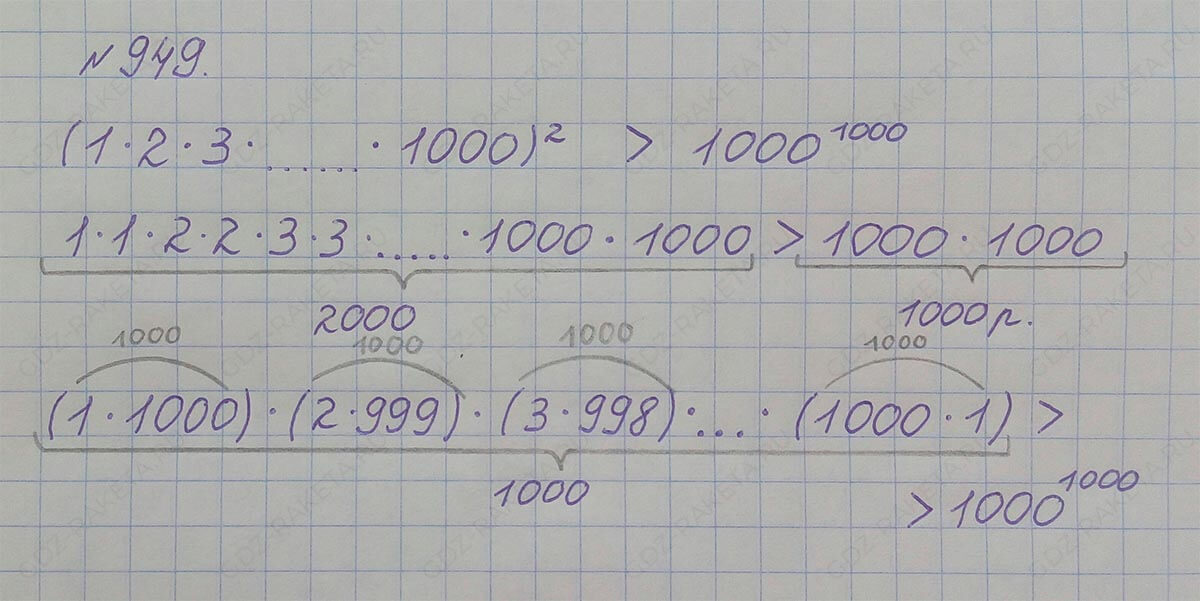 № 949.
(1·2·3·......·1000)² > 1000¹⁰⁰⁰
1·1·2·2·3·3·.....·1000·1000 > 1000·1000
2000 1000р.
1000 1000 1000 1000
(1·1000)·(2·999)·(3·998)·...·(1000·1) >
1000
> 1000¹⁰⁰⁰
GDZ-RAKETA.RU